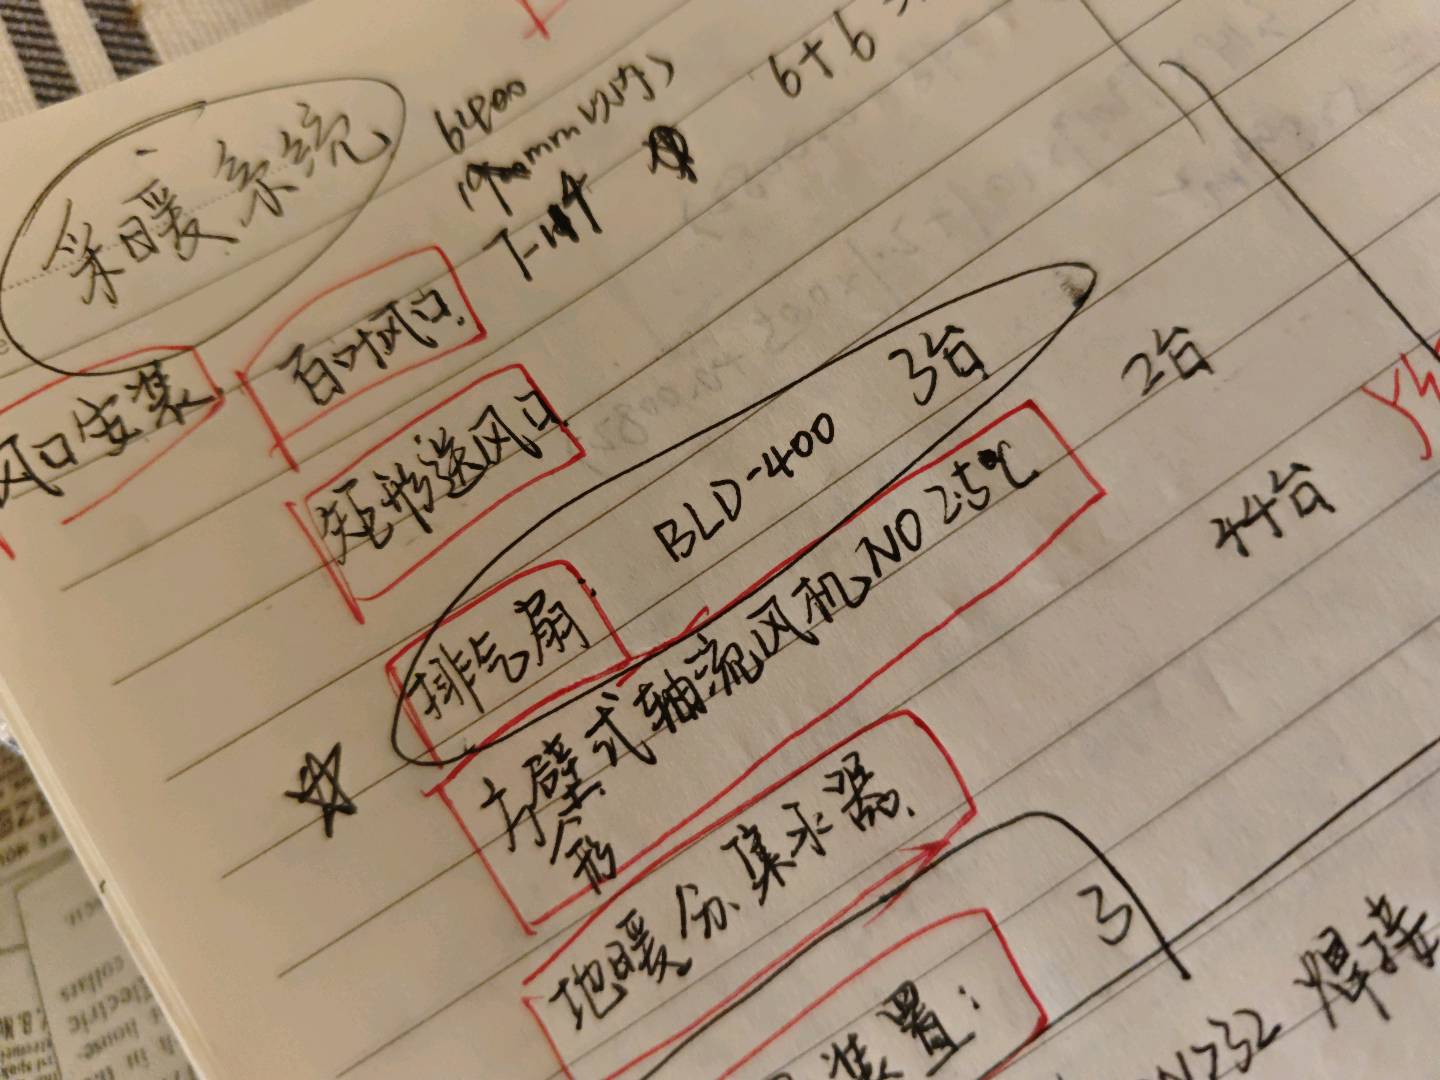 采暖系统
6400
1900mm以内)
6+6
风口安装
百叶风口
矩形送风口
排气扇: BLD-400 3台
方壁式轴流风机NO 2.5℃ 2台
地暖分.集水器. 44台
装置: 3
焊接